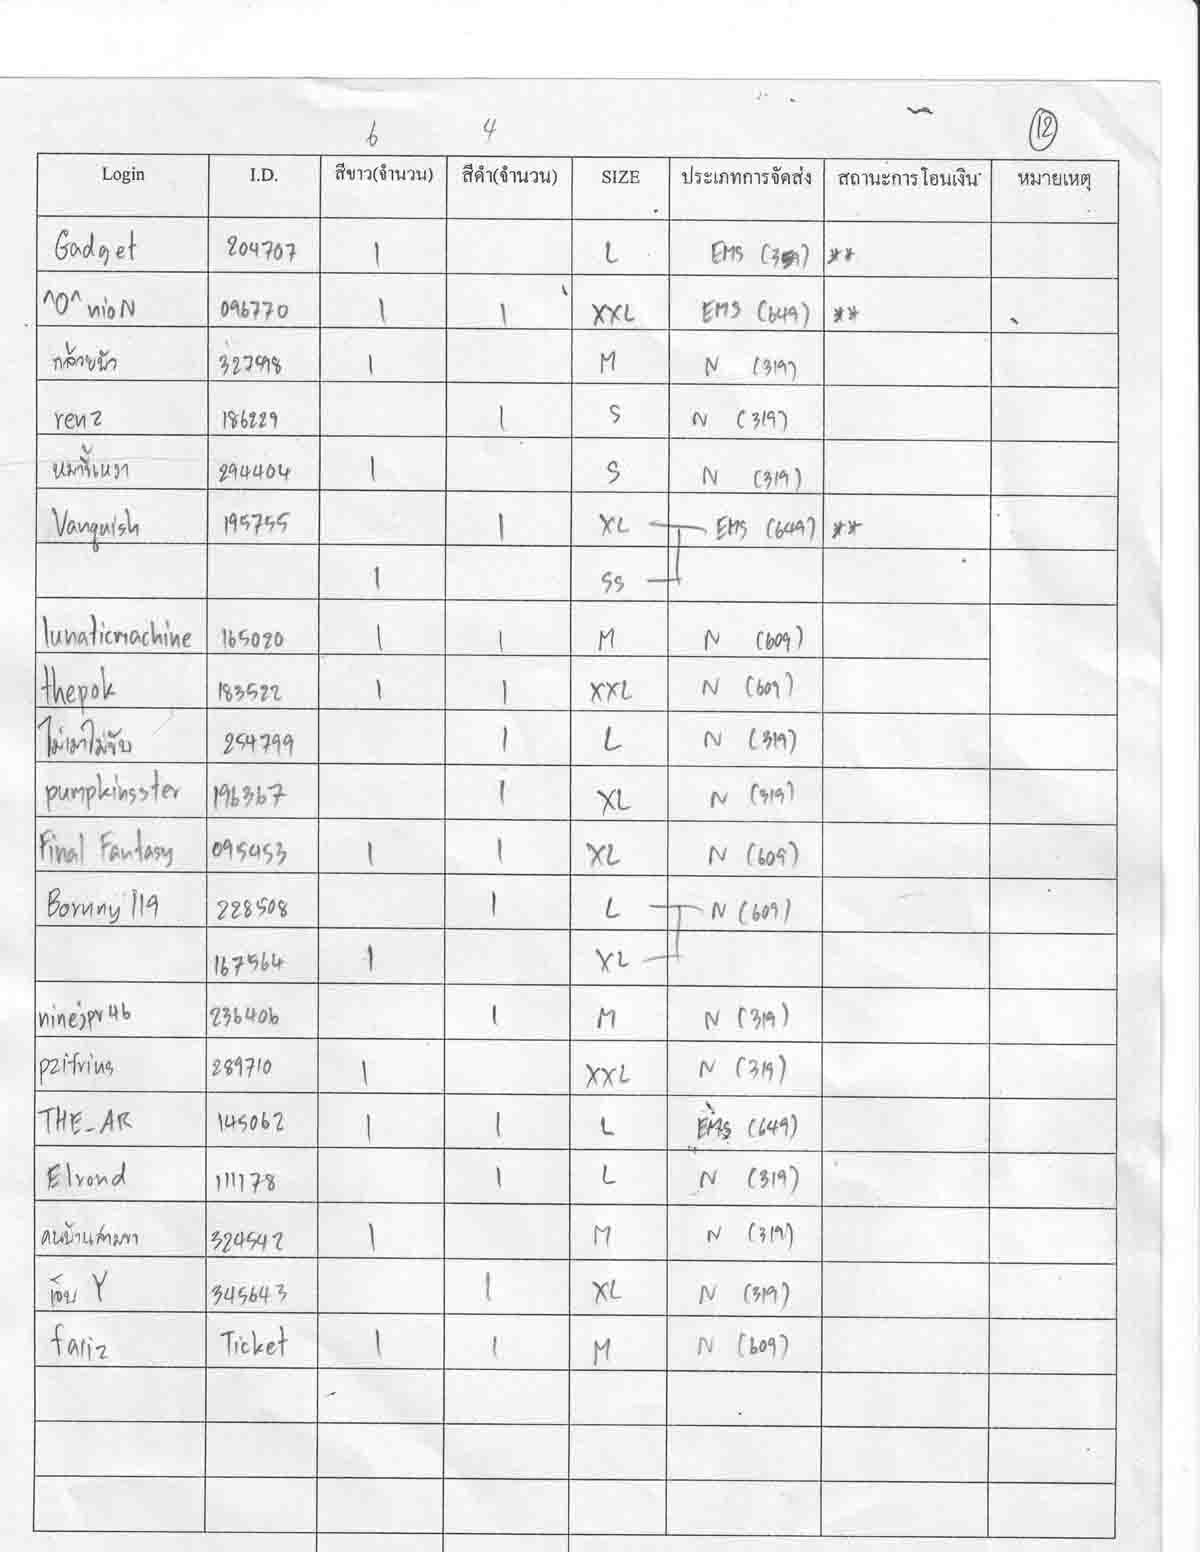 6 4 12
Login I.D. สีขาว(จำนวน) สีดำ(จำนวน) SIZE ประเภทการจัดส่ง สถานะการโอนเงิน หมายเหตุ
Gadget 204707 1 L EMS (359) **
^O^nioN 096770 1 1 XXL EMS (649) **
กล้วยบัว 327998 1 M N (319)
renz 186229 1 S N (319)
หมาขี้เหงา 294404 1 S N (319)
Vanquish 195755 1 XL EMS (649) **
1 SS
lunaticmachine 165020 1 1 M N (609)
thepok 183522 1 1 XXL N (609)
ไม่เมาไม่ขับ 254799 1 L N (319)
pumpkinsster 196367 1 XL N (319)
Final Fantasy 095453 1 1 XL N (609)
228508 1 L N (609)
167564 1 XL
ninejpr46 236406 1 M N (319)
pzifrius 289710 1 XXL N (319)
THE_AR 145062 1 1 L EMS (649)
Elrond 111178 1 L N (319)
คนบ้านสามขา 324542 1 M N (319)
Y 345643 1 XL N (319)
fariz Ticket 1 1 M N (609)